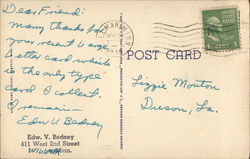 Dear Friend:
Many thanks for
your recent Large
Letter card which
is the only type
card I collect.
I remain—
Edw V. Bedney
Edw. V. Bedney
411 West 2nd Street
Willmar, Minn.
POST CARD
Lizzie Mouton
Duson, La.